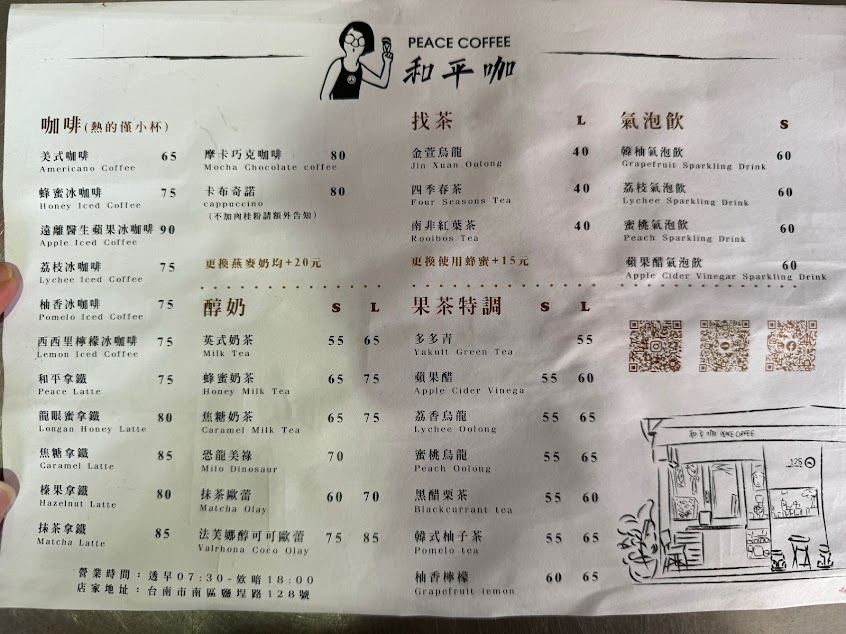 PEACE COFFEE
和平咖
咖啡(熱的僅小杯)
美式咖啡 65
Americano Coffee
蜂蜜冰咖啡 75
Honey Iced Coffee
遠離醫生蘋果冰咖啡 90
Apple Iced Coffee
荔枝冰咖啡 75
Lychee Iced Coffee
柚香冰咖啡 75
Pomelo Iced Coffee
西西里檸檬冰咖啡 75
Lemon Iced Coffee
和平拿鐵 75
Peace Latte
龍眼蜜拿鐵 80
Longan Honey Latte
焦糖拿鐵 85
Caramel Latte
榛果拿鐵 80
Hazelnut Latte
抹茶拿鐵 85
Matcha Latte
摩卡巧克咖啡 80
Mocha Chocolate coffee
卡布奇諾 80
cappuccino
(不加肉桂粉請額外告知)
更換燕麥奶均+20元
醇奶 S L
英式奶茶 55 65
Milk Tea
蜂蜜奶茶 65 75
Honey Milk Tea
焦糖奶茶 65 75
Caramel Milk Tea
恐龍美祿 70
Milo Dinosaur
抹茶歐蕾 60 70
Matcha Olay
法芙娜醇可可歐蕾 75 85
Valrhona Coco Olay
找茶 L
金萱烏龍 40
Jin Xuan Oolong
四季春茶 40
Four Seasons Tea
南非紅葉茶 40
Rooibos Tea
更換使用蜂蜜+15元
果茶特調 S L
多多青 55
Yakult Green Tea
蘋果醋 55 60
Apple Cider Vinega
荔香烏龍 55 65
Lychee Oolong
蜜桃烏龍 55 65
Peach Oolong
黑醋栗茶 55 60
Blackcurrant tea
韓式柚子茶 55 65
Pomelo tea
柚香檸檬 60 65
Grapefruit lemon
氣泡飲 S
韓柚氣泡飲 60
Grapefruit Sparkling Drink
荔枝氣泡飲 60
Lychee Sparkling Drink
蜜桃氣泡飲 60
Peach Sparkling Drink
蘋果醋氣泡飲 60
Apple Cider Vinegar Sparkling Drink
和平咖 PEACE COFFEE
128
營業時間：透早07:30-致暗18:00
店家地址：台南市南區鹽埕路128號